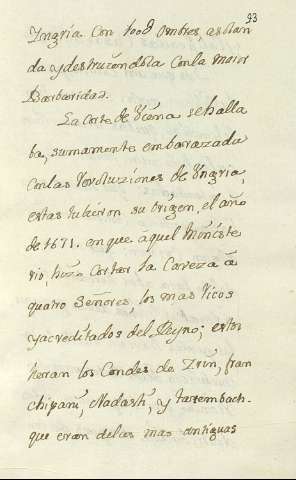 93
Yngria con 400[] ombres, asolan
da y destruiendola con la maior
Barbaridad.
La Corte de Viena se halla
ba, sumamente embarazada
con las revoluziones de Vngria,
estas tubieron su origen, el año
de 1671. en que aquel Ministe
rio, hizo Cortar la Caveza à
quatro Señores, los mas ricos
y acreditados del Reyno; estos
heran los Condes de Zrin, Fran
chipani, Nadasti, y Tatembach.
que eran de las mas antiguas